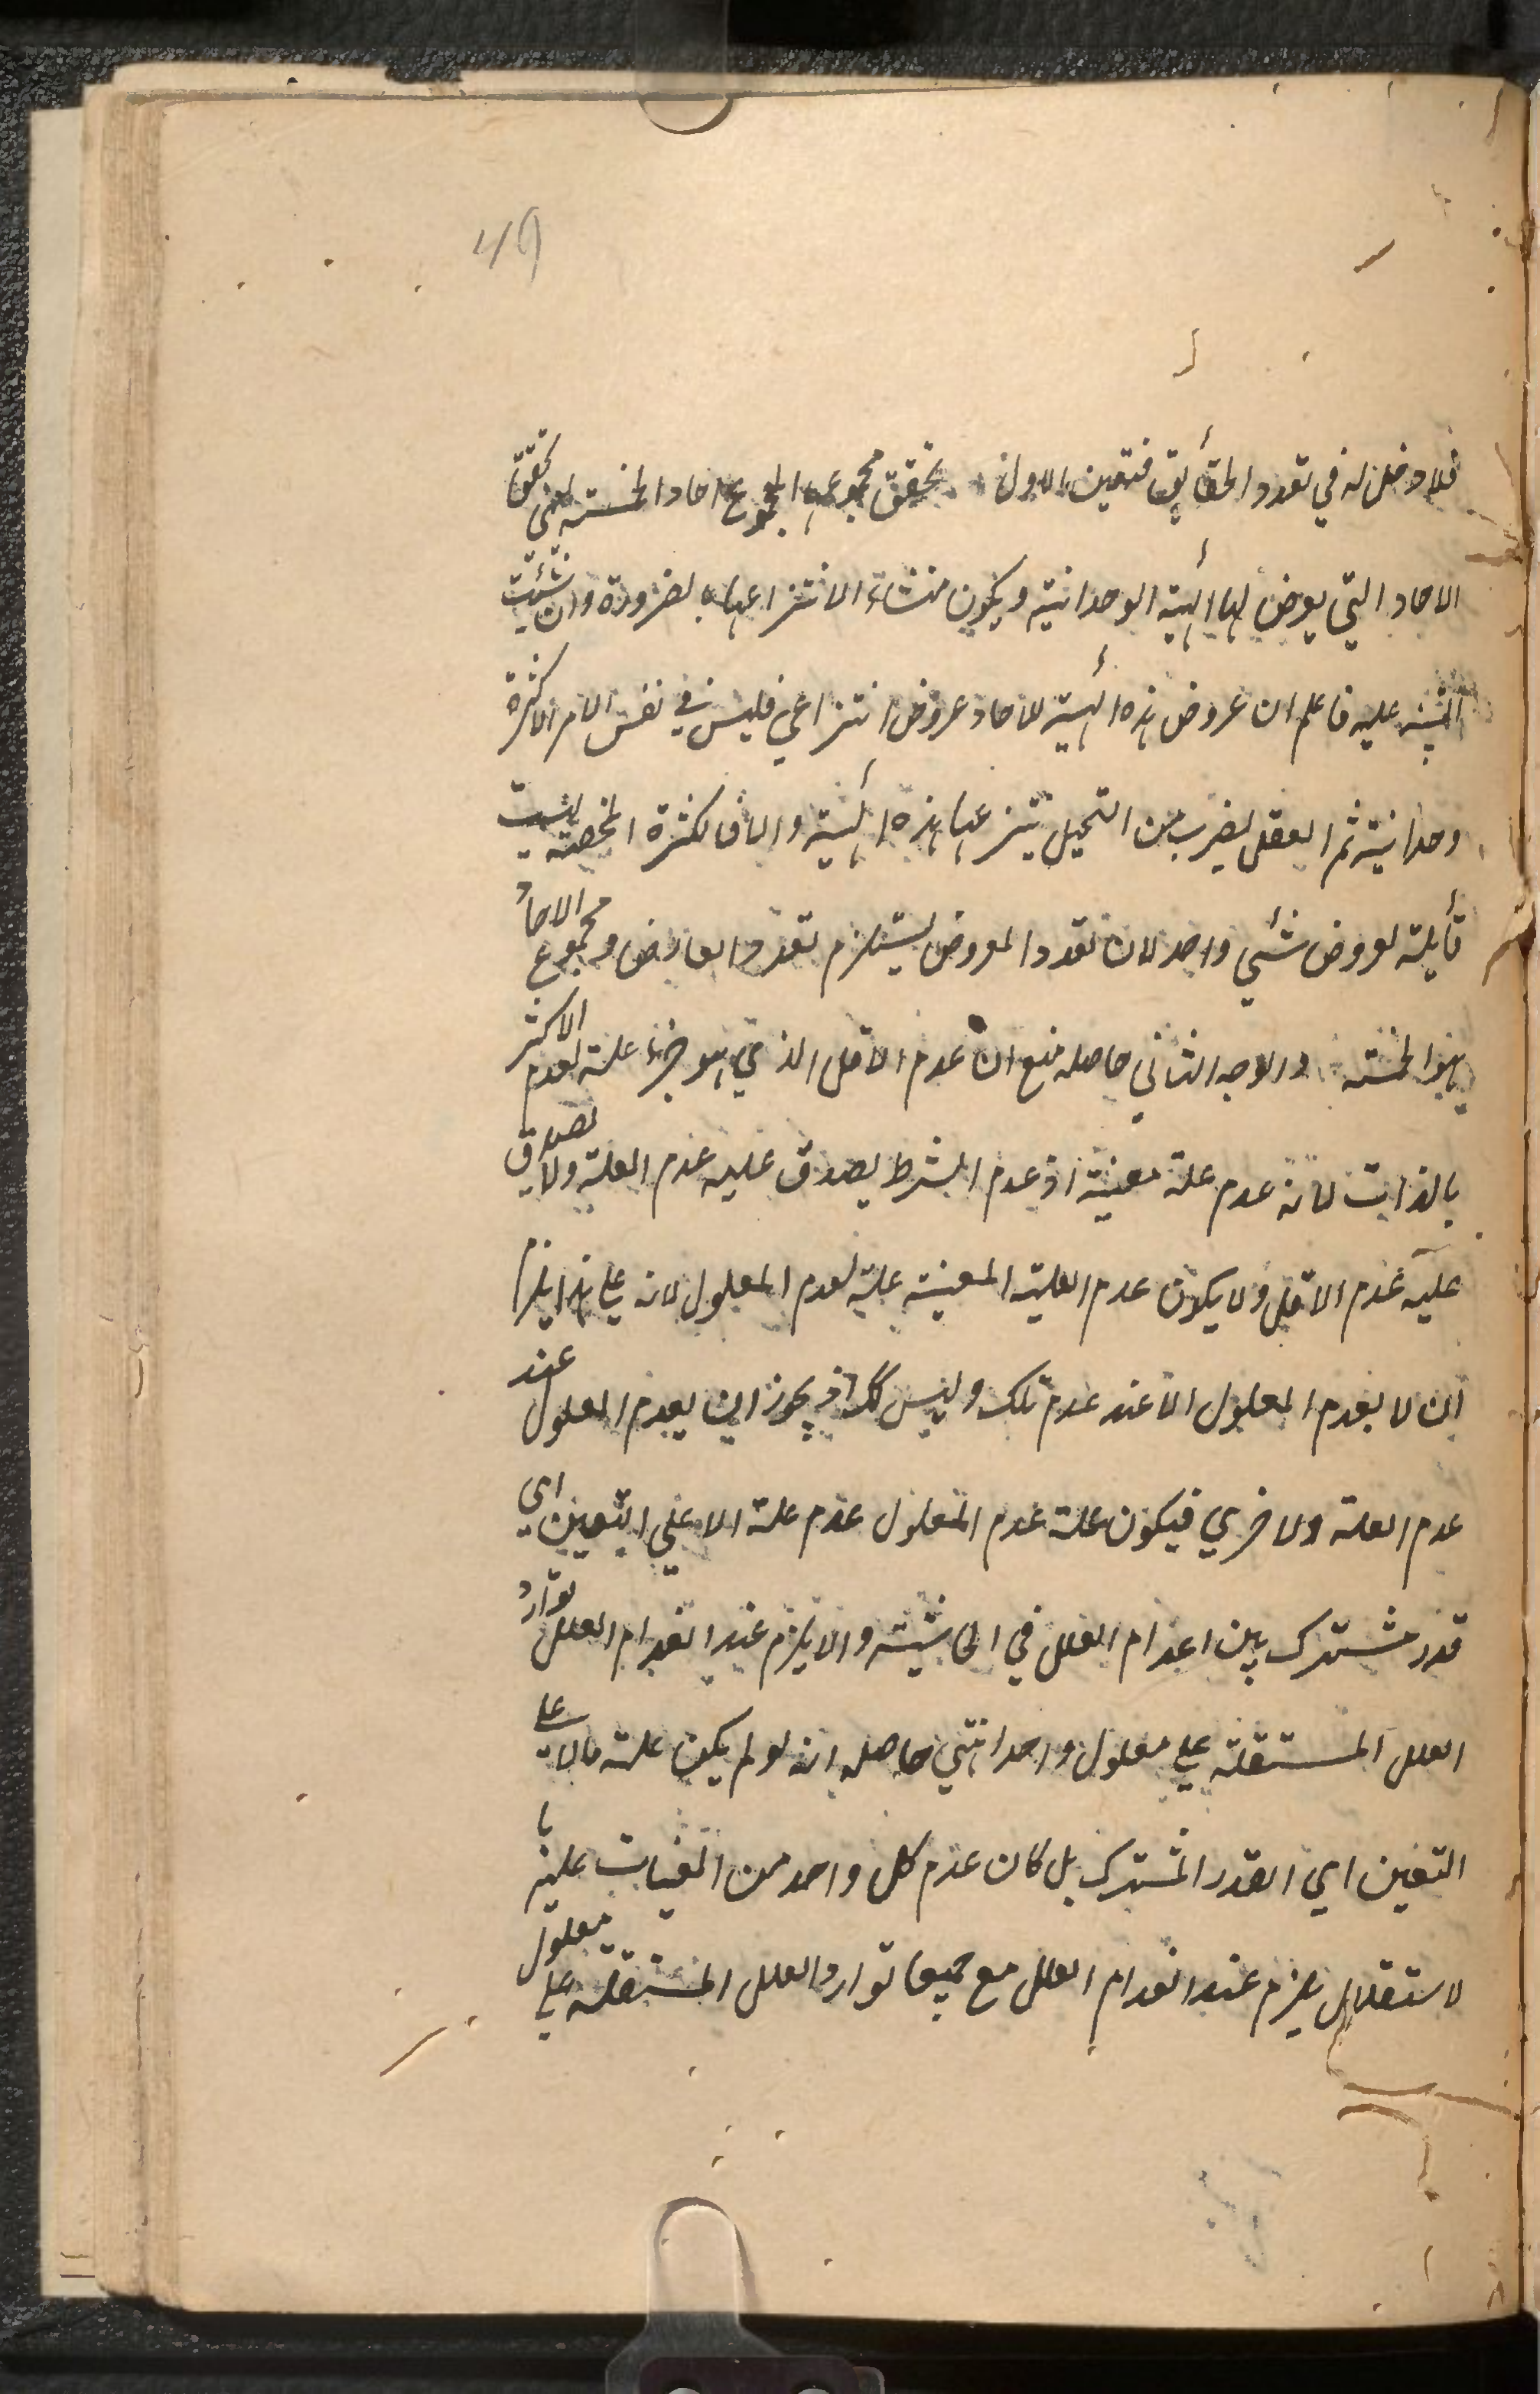 49
فلا دخل له في تعدد الحقائق فتعين الاول تحقق مجموعها المجموع احاد الخمسة لمعنى تحقق
الاحاد التي يعرض لها الهيئة الوحدانية ويكون منشاء الانتزاعها بالضرورة وان شئت
التنبيه عليه فاعلم ان عروض هذه الهيئة للاحاد عروض انتزاعي فليس في نفس الامر الا كثرة
وحدانية ثم العقل لضرب من التحيل ينتزعها هذه الهيئة والا فالكثرة المحضة ليست
قابلة لعروض شئي واحد لان تعدد المعروض يستلزم تعدد العارض ومجموع الاحاد
بهذا الخمسة والوجه الثاني حاصله منع ان عدم الاقل الذي هو جزء علة لعدم الاكثر
بالذات لانه عدم علة معينة اذ عدم الشرط يصدق عليه عدم العلة ولا يصدق
عليه عدم الاقل ولا يكون عدم العلية المعينة علة لعدم المعلول لانه على هذا يلزم
ان لا يعدم المعلول الا عند عدم تلك وليس كك اذ يجوز ان يعدم المعلول عند
عدم العلة ولاخري فيكون علة عدم المعلول عدم علة الا علي التعين اي
قدر مشترك بين اعدام العلل في الحاشية والا يلزم عند انعدام العلل توارد
العلل المستقلة علي معلول واحد انتهي حاصله انه لو لم يكن علة مالا علي
التعين اي القدر المشترك بل كان عدم كل واحد من المعينات علية با
لاستقلال يلزم عند انعدام العلل مع جميعا توارد العلل المستقلة علي معلول